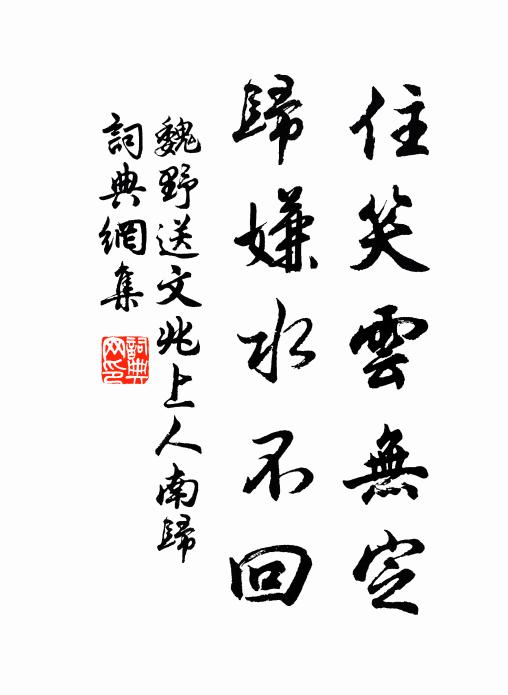 住笑雲無定
歸嫌水不回
魏野送文兆上人南歸
詞典網集
詞典网印